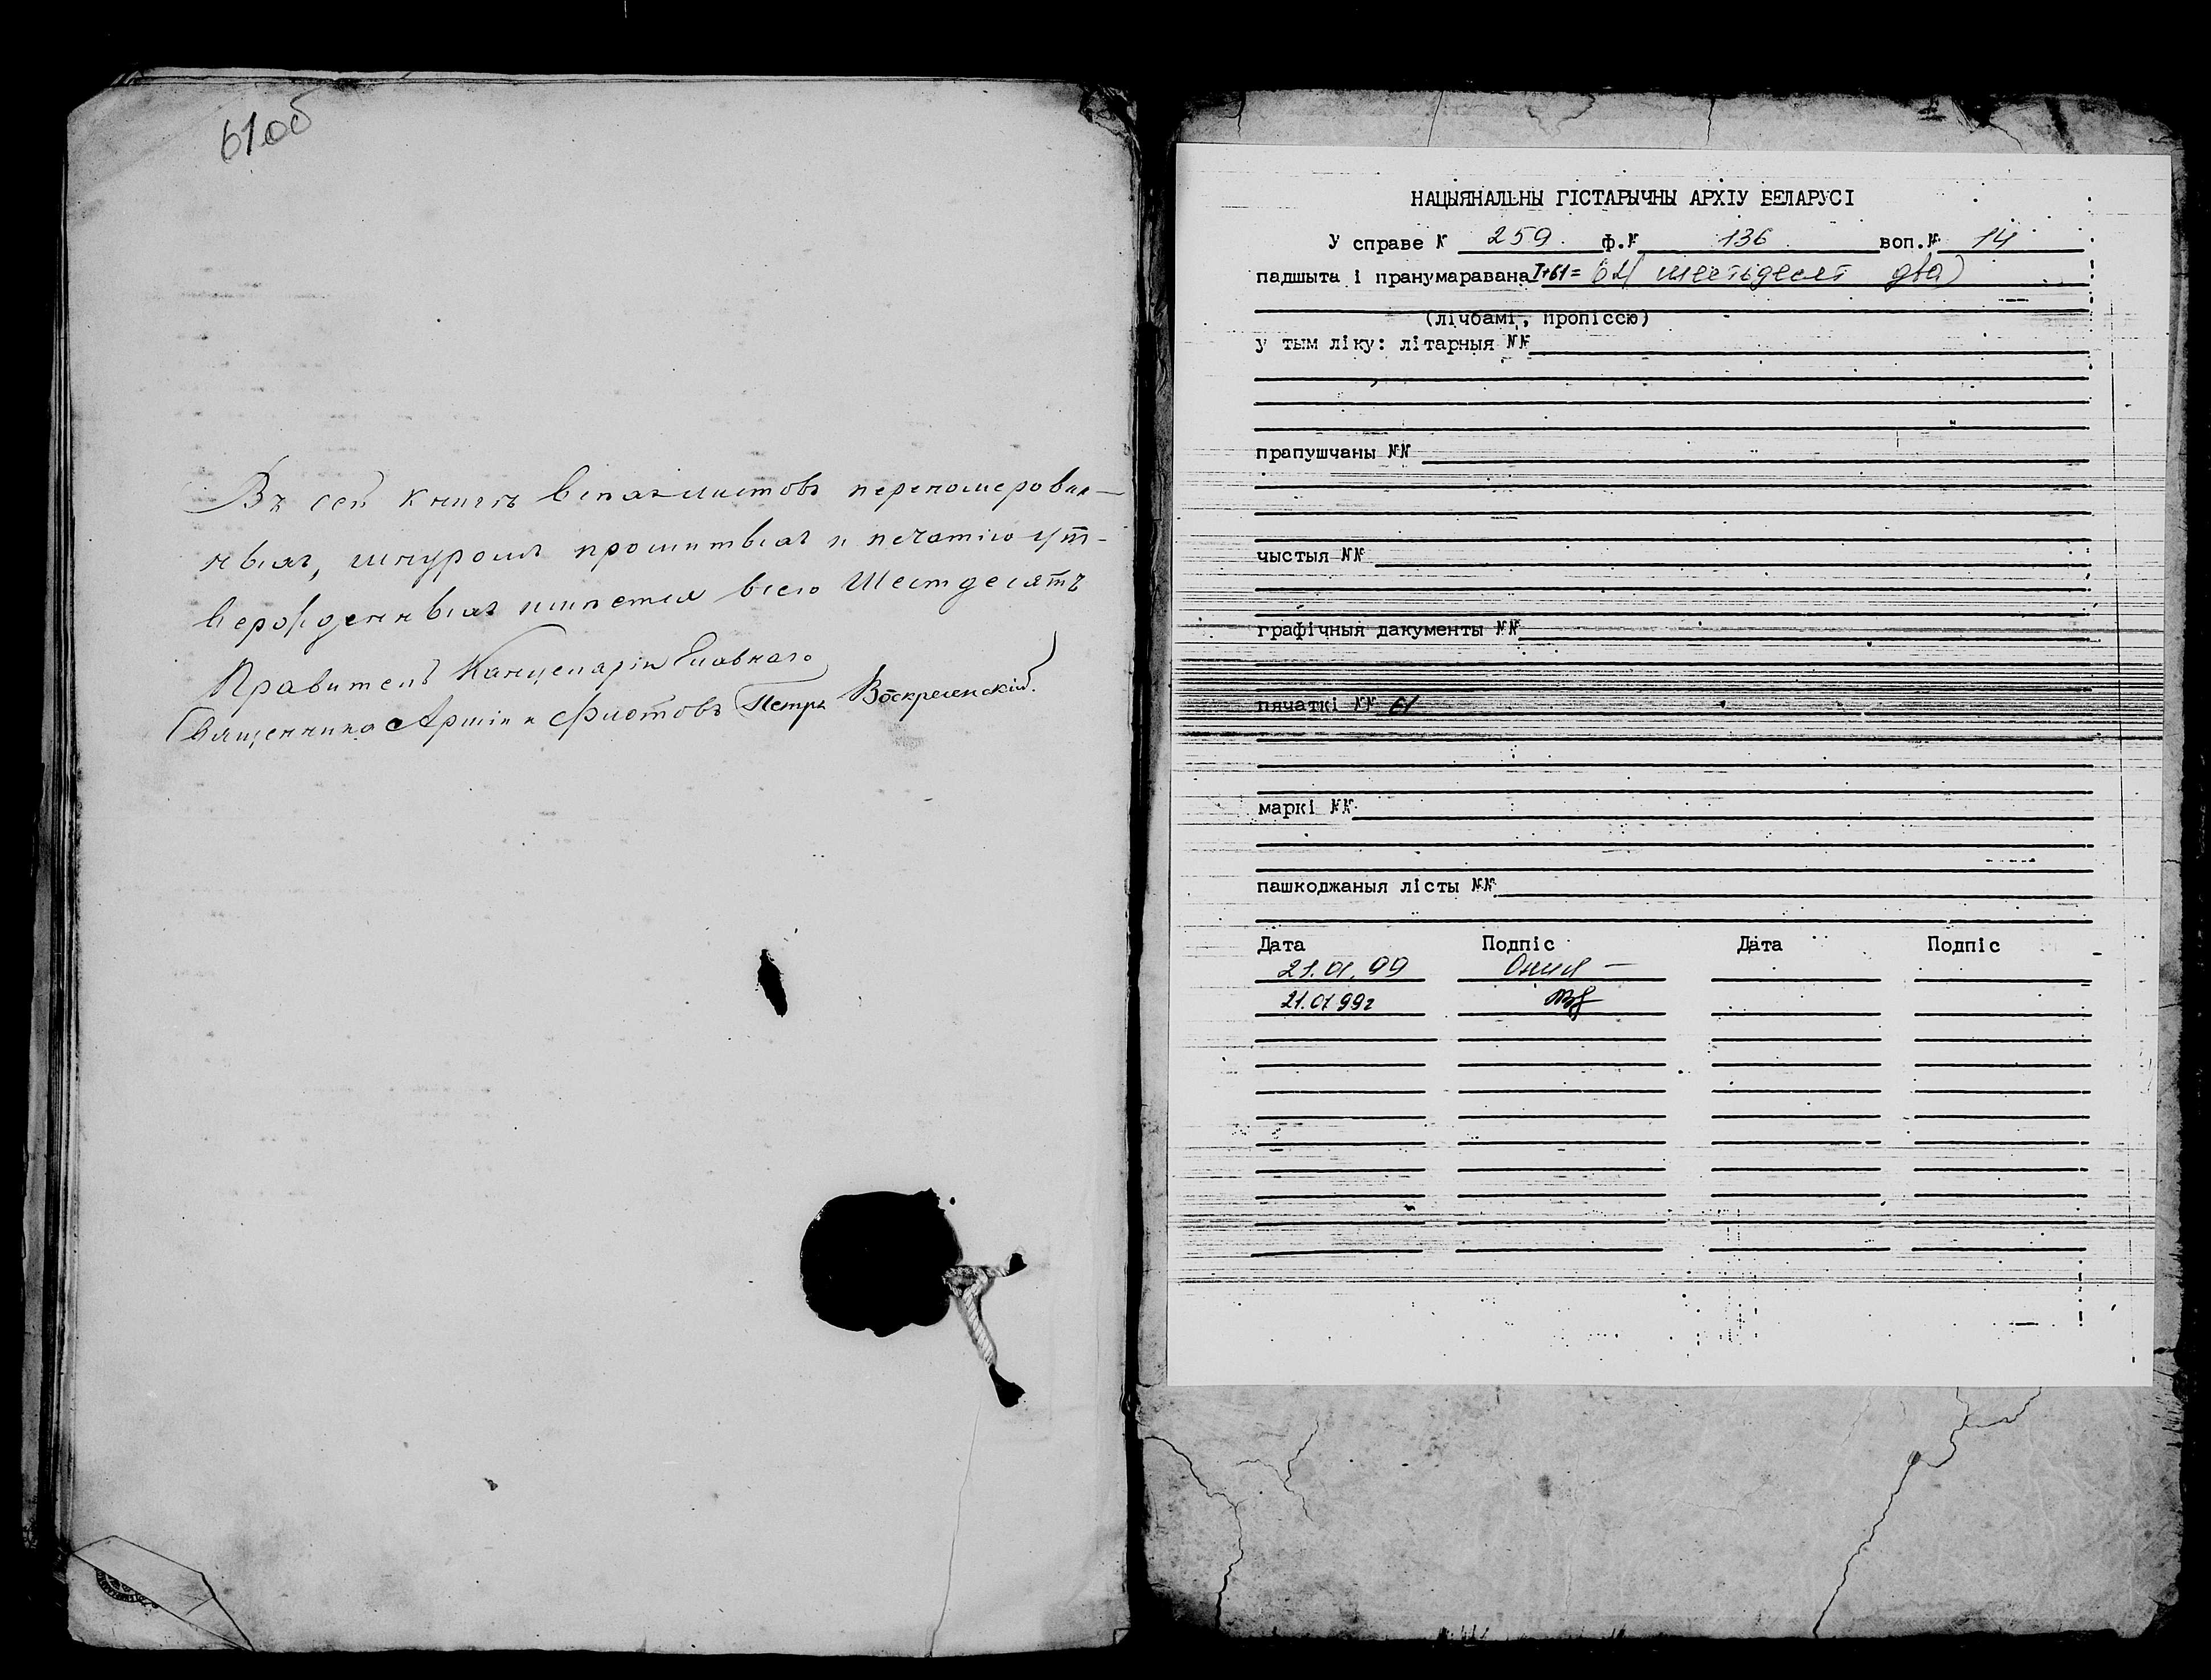 61об
Въ сей книгѣ всѣхъ листовъ перенумерован-
ныхъ, шнуромъ прошитыхъ и печатію ут-
вержденныхъ имѣется всего Шестдесятъ
Правитель Канцеляріи Главнаго
Священника Арміи и Флотовъ Петръ Воскресенскій.
НАЦЫЯНАЛЬНЫ ГІСТАРЫЧНЫ АРХІУ БЕЛАРУСІ
У справе N 259. ф.N 136 воп.N 14
падшыта і пранумаравана I+61= 62( шестьдесят два)
(лічбамі, пропіссю)
у тым ліку: літарныя NN
прапушчаны NN
чыстыя NN
графічныя дакументы NN
пячаткі NN 61
маркі NN
пашкоджаныя лісты NN
Дата Подпіс Дата Подпіс
21.01.99
21.01 99г